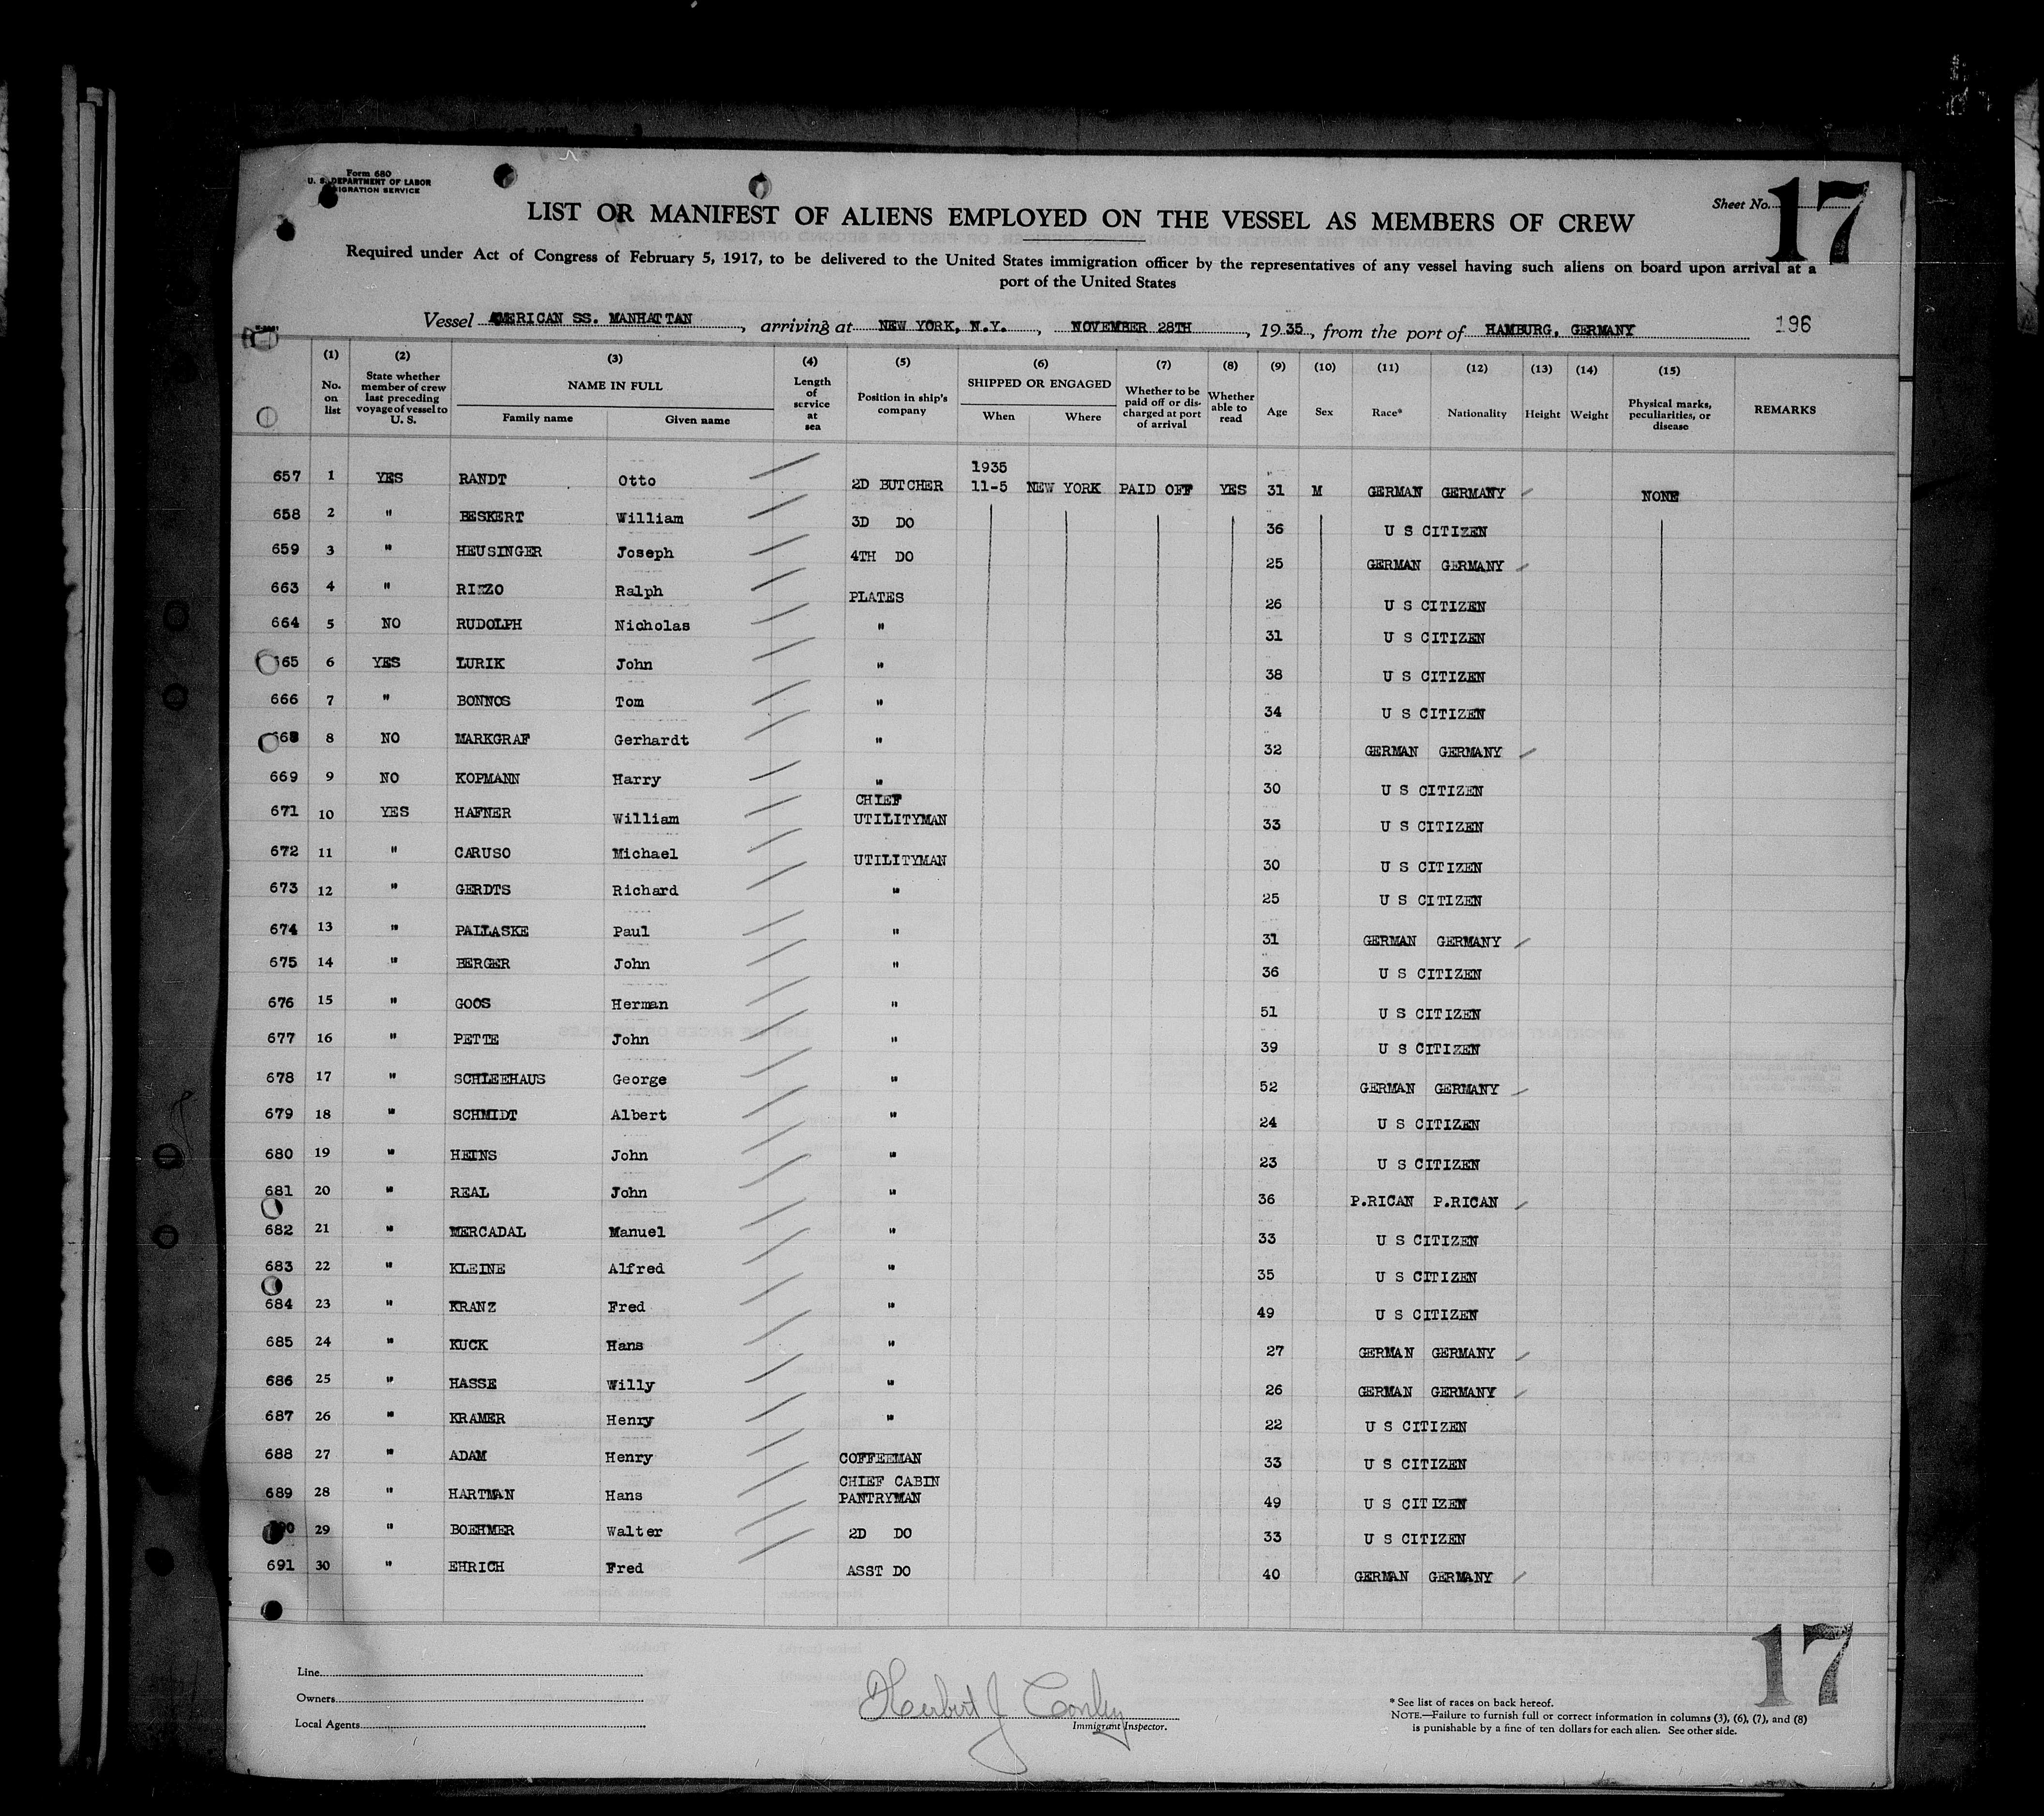 Form 680
U. S. DEPARTMENT OF LABOR
IMMIGRATION SERVICE
Sheet No. 17
LIST OR MANIFEST OF ALIENS EMPLOYED ON THE VESSEL AS MEMBERS OF CREW
Required under Act of Congress of February 5, 1917, to be delivered to the United States immigration officer by the representatives of any vessel having such aliens on board upon arrival at a
port of the United States
Vessel AMERICAN SS. MANHATTAN, arriving at NEW YORK, N.Y., NOVEMBER 28TH, 1935, from the port of HAMBURG, GERMANY 196
(1) No. on list (2) State whether member of crew last preceding voyage of vessel to U. S. (3) NAME IN FULL Family name Given name (4) Length of service at sea (5) Position in ship's company (6) SHIPPED OR ENGAGED When Where (7) Whether to be paid off or discharged at port of arrival (8) Whether able to read (9) Age (10) Sex (11) Race* (12) Nationality (13) Height (14) Weight (15) Physical marks, peculiarities, or disease REMARKS
657 1 YES RANDT Otto 2D BUTCHER 1935 11-5 NEW YORK PAID OFF YES 31 M GERMAN GERMANY NONE
658 2 " BESKERT William 3D DO 36 U S CITIZEN
659 3 " HEUSINGER Joseph 4TH DO 25 GERMAN GERMANY
663 4 " RIZZO Ralph PLATES 26 U S CITIZEN
664 5 NO RUDOLPH Nicholas " 31 U S CITIZEN
665 6 YES LURIK John " 38 U S CITIZEN
666 7 " BONNOS Tom " 34 U S CITIZEN
668 8 NO MARKGRAF Gerhardt " 32 GERMAN GERMANY
669 9 NO KOPMANN Harry " 30 U S CITIZEN
671 10 YES HAFNER William CHIEF UTILITYMAN 33 U S CITIZEN
672 11 " CARUSO Michael UTILITYMAN 30 U S CITIZEN
673 12 " GERDTS Richard " 25 U S CITIZEN
674 13 " PALLASKE Paul " 31 GERMAN GERMANY
675 14 " BERGER John " 36 U S CITIZEN
676 15 " GOOS Herman " 51 U S CITIZEN
677 16 " PETTE John " 39 U S CITIZEN
678 17 " SCHLEEHAUS George " 52 GERMAN GERMANY
679 18 " SCHMIDT Albert " 24 U S CITIZEN
680 19 " HEINS John " 23 U S CITIZEN
681 20 " REAL John " 36 P.RICAN P.RICAN
682 21 " MERCADAL Manuel " 33 U S CITIZEN
683 22 " KLEINE Alfred " 35 U S CITIZEN
684 23 " KRANZ Fred " 49 U S CITIZEN
685 24 " KUCK Hans " 27 GERMAN GERMANY
686 25 " HASSE Willy " 26 GERMAN GERMANY
687 26 " KRAMER Henry " 22 U S CITIZEN
688 27 " ADAM Henry COFFEEMAN 33 U S CITIZEN
689 28 " HARTMAN Hans CHIEF CABIN PANTRYMAN 49 U S CITIZEN
690 29 " BOEHMER Walter 2D DO 33 U S CITIZEN
691 30 " EHRICH Fred ASST DO 40 GERMAN GERMANY
17
Line
Owners
Local Agents
Herbert J Conley
Immigrant Inspector.
* See list of races on back hereof.
NOTE.—Failure to furnish full or correct information in columns (3), (6), (7), and (8)
is punishable by a fine of ten dollars for each alien. See other side.